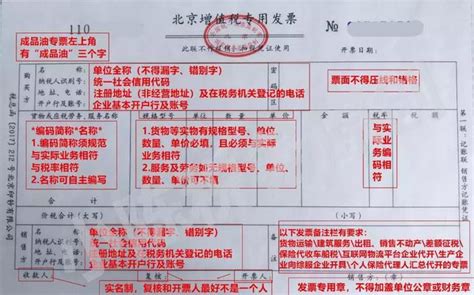 110
北京增值税专用发票
No
成品油专票左上角
有“成品油”三个字
此联不作报销、扣税凭证使用
开票日期：
购买方
名称：
纳税人识别号：
地址、电话：
开户行及账号：
单位全称（不得漏字、错别字）
统一社会信用代码
注册地址（非经营地址）及在税务机关登记的电话
企业基本开户行及账号
密码区
票面不得压线和错格
货物或应税劳务、服务名称
规格型号
单位
数量
单价
金额
税率
税额
*编码简称*名称*
1.编码简称须规范
与实际业务相符
与税率相符
2.名称可自主编写
1.货物等实物有规格型号、单位、
数量、单价必填，且必须与实际
业务相符
2.服务及劳务如无规格型号、单位、
数量、单价可不填
税率
与实际业务编码相符
价税合计（大写）
（小写）
销售方
名称：
纳税人识别号：
地址、电话：
开户行及账号：
单位全称（不得漏字、错别字）
统一社会信用代码
注册地址及在税务机关登记的电话
企业基本开户行及账号
以下发票备注栏有要求：
货物运输\建筑服务\出租、销售不动产\差额征税\
保险代收车船税\互联网物流平台企业代开\生产企
业向综服企业开具\个人保险代理人汇总代开的专票
收款人：
复核：
开票人：
销售方：（章）
实名制，复核和开票人最好不是一个人
发票专用章，不得加盖单位公章或财务
税总函〔2017〕212号北京印钞有限公司
第一联：记账联 销售方记账凭证